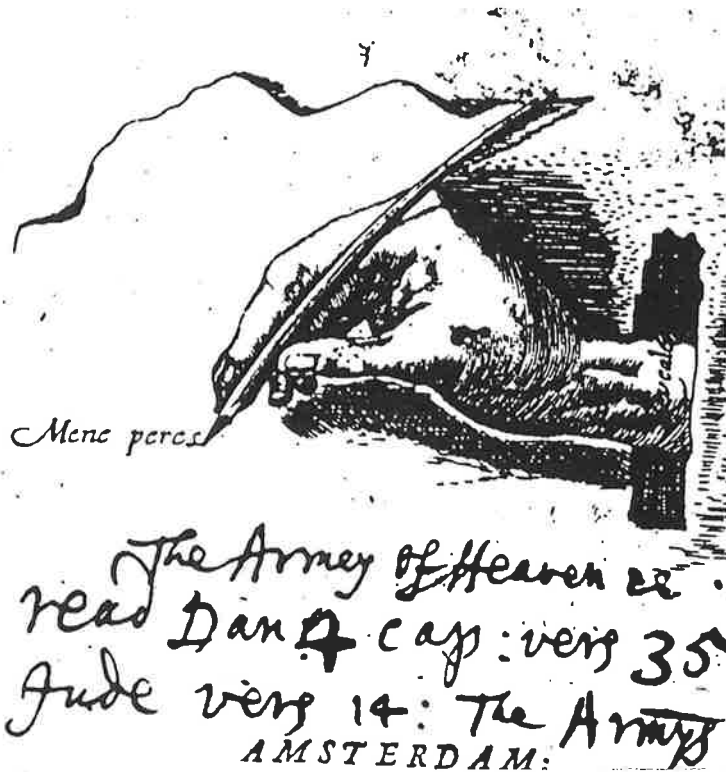 Mene peres
The Armey of Heaven
read Dan 4 cap : vers 35
Jude vers 14 : The Armys
AMSTERDAM: